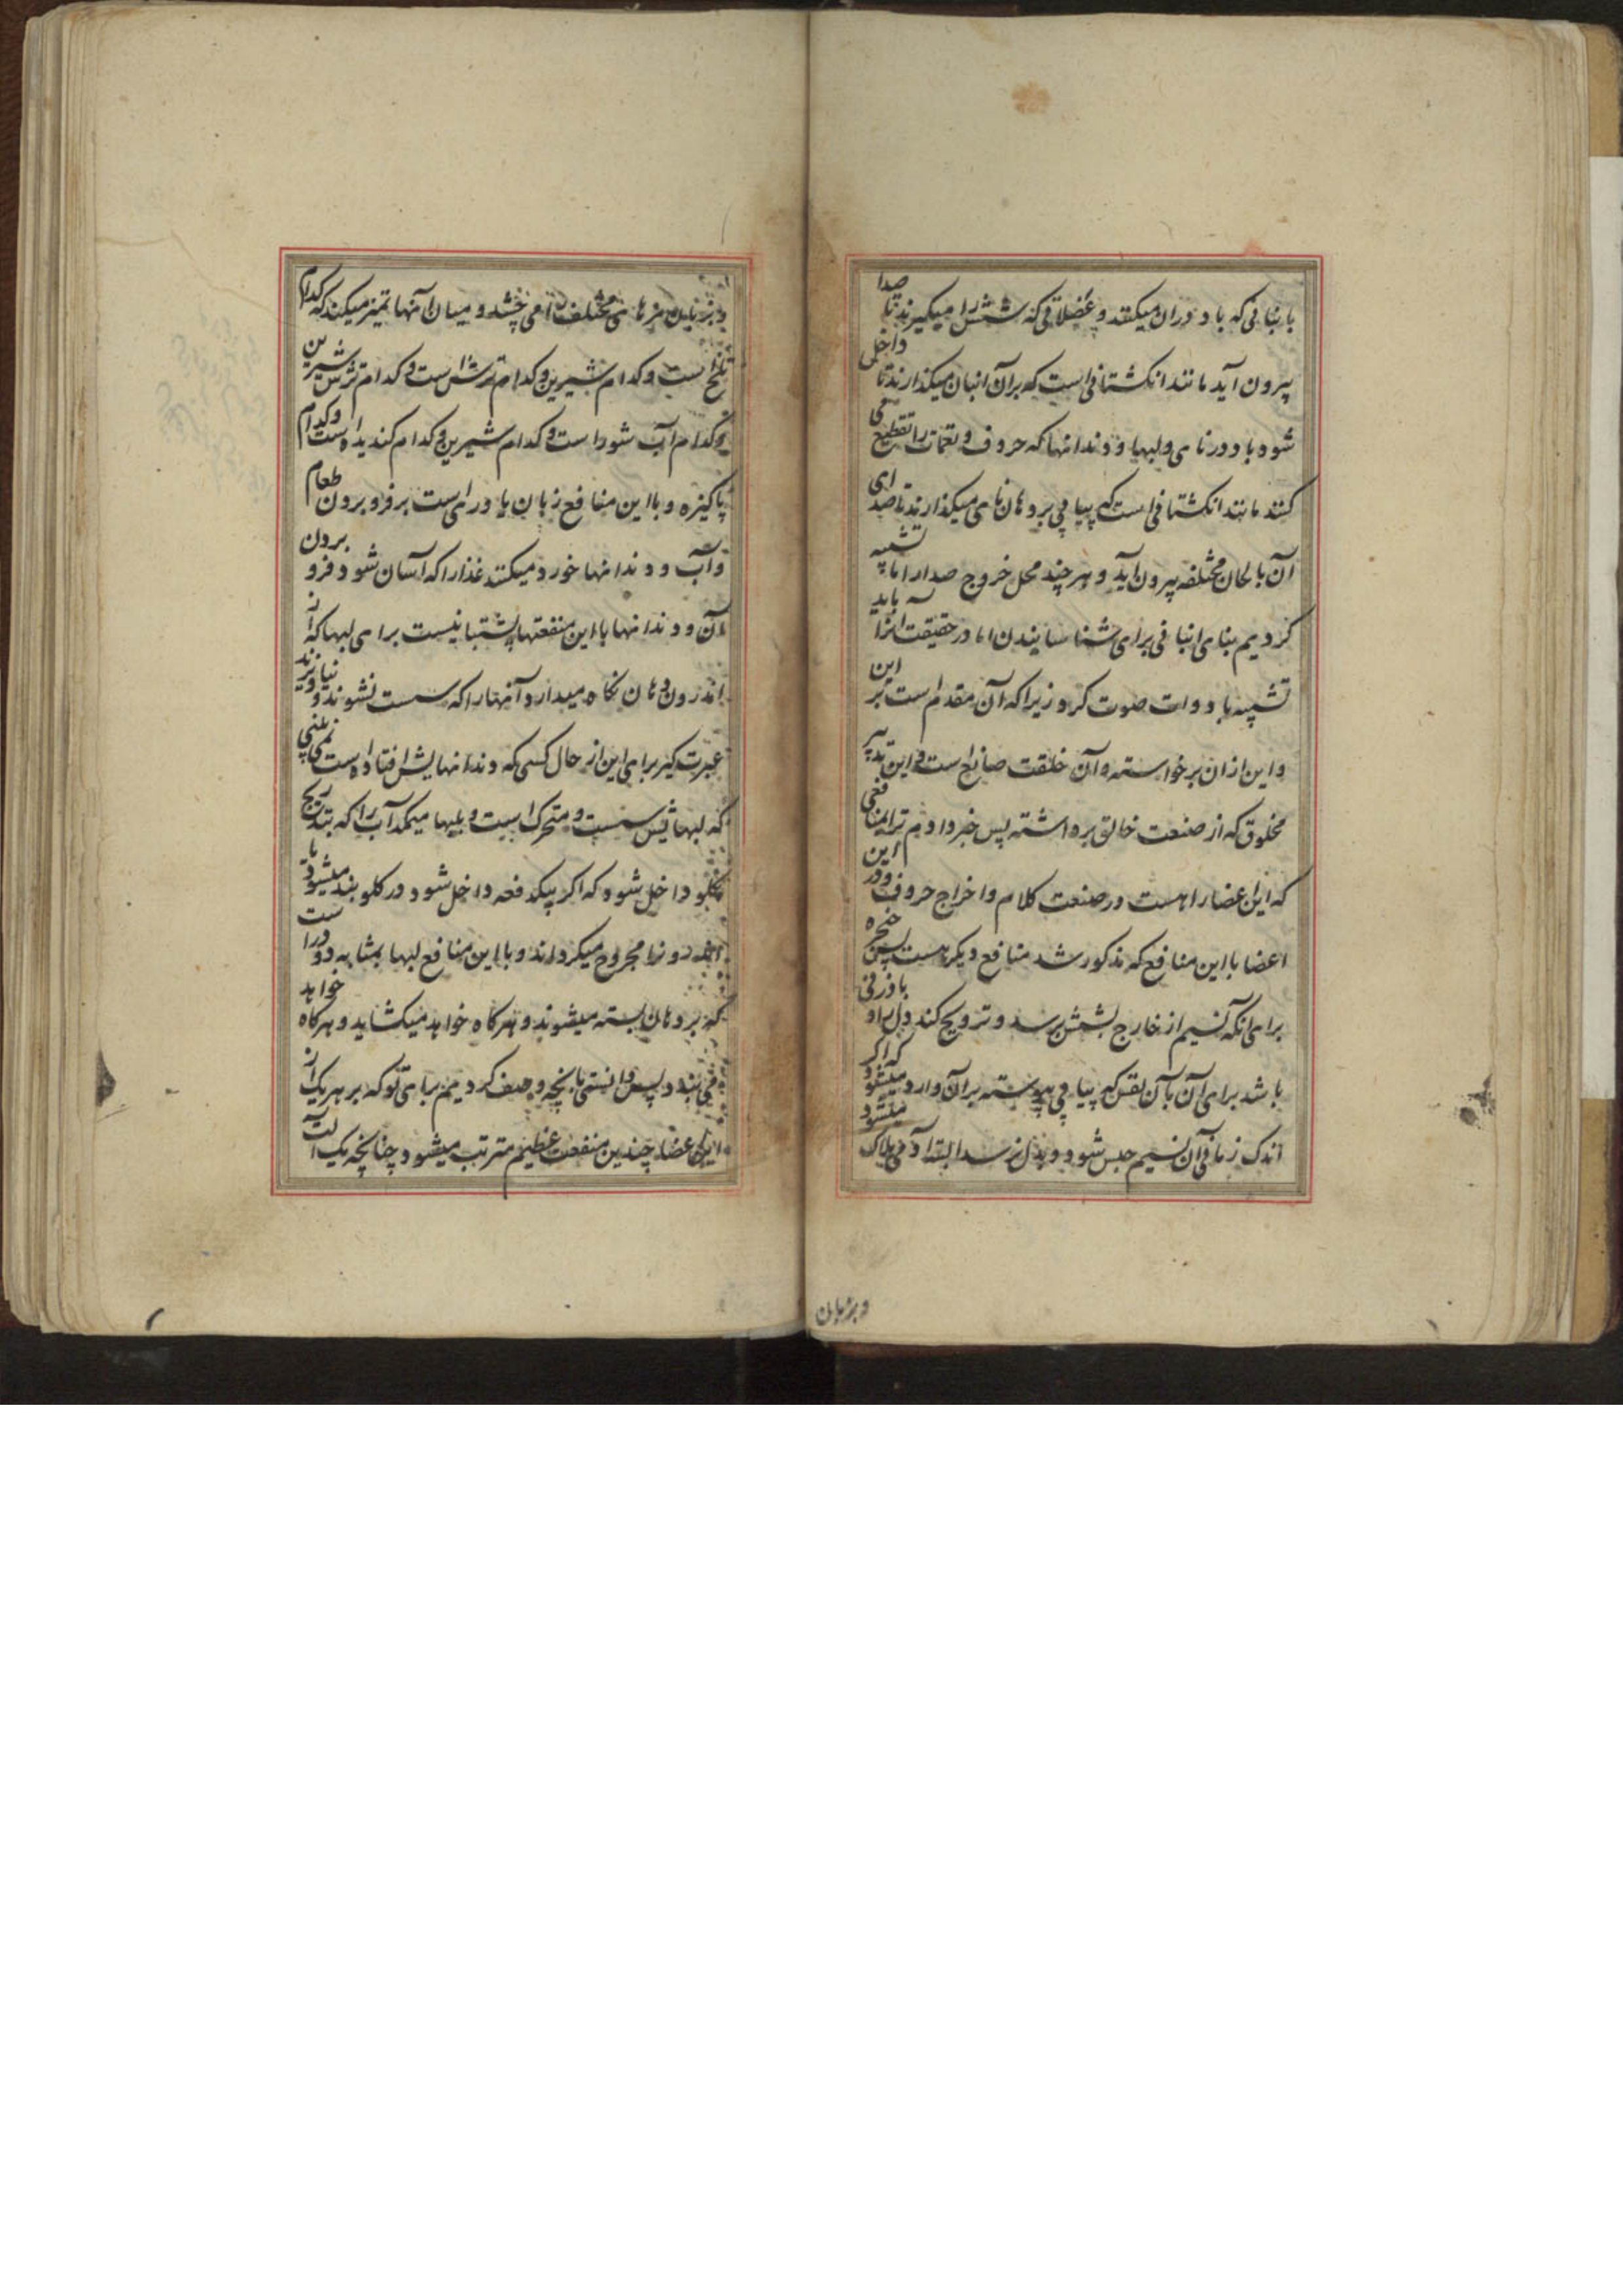 بانبانی که باد در ان میکنند و عضلاتی که شش را میکیرند تا صدا
بیرون آید مانند انکشتانی است که بر آن انبان میکذارند تا داخل
شود باد در نای و لبها و دندانها که حروف و نغمات را تقطیع می
کنند مانند انکشتانی است که پیاپی بر دهان نای میکذارند تا صدای
آن بالحان مختلفه بیرون آید و هر چند محل خروج صدا را اما تشبیه
کردیم بنای انبانی برای شناسانیدن اما در حقیقت انرا باید
تشبیه بادوات صوت کرد زیرا که آن مقدم است بر این
و این ازان برخواسته و آن خلقت صانع است و این تدبیر
مخلوق که از صنعت خالق برداشته پس خبر دادم ترا بمنافعی
که این اعضا را هست در صنعت کلام و اخراج حروف و در این
اعضا با این منافع که مذکور شد منافع دیکر هست پس حنجره
برای انکه نسیم از خارج بشش برسد و ترویح کند دل را و بادزنی
باشد برای آن بآن نفس که پیاپی پیوسته بر آن وارد میشود که اکر
اندک زمانی آن نسیم حبس شود و بدل نرسد البته آدمی هلاک میشود
و بزبان
و بزبان مزهای مختلف را می چشد و میان آنها تمیز میکند که کدام
تلخ است و کدام شیرین و کدام ترش است و کدام ترش شیرین
و کدام آب شور است و کدام شیرین و کدام کندیده است و کدام
پاکیزه و با این منافع زبان یاوری است بر فرو بردن طعام
و آب و دندانها خورد میکنند غذا را که آسان شود فرو بردن
آن و دندانها با این منفعتها پشتبانیست برای لبها که از
اندرون دهان نکاه میدارد آنها را که سست نشوند و نیاویزند
عبرت کیر برای این از حال کسی که دندانهایش افتاده است نمی بینی
که لبهایش سست و متحرک است و بلبها میمکد آب را که بتدریج
بکلو داخل شود که اکر بیکدفعه داخل شود در کلو بند میشود یا
اندرونرا مجروح میکرداند و با این منافع لبها بمثابه دو در است
که بر دهان بسته میشوند و هرکاه خواهد میکشاید و هرکاه خواهد
می بندد پس دانستی بانچه وصف کردیم برای تو که بر هر یک از
این اعضا چندین منفعت عظیم مترتب میشود چنانچه یک آلت